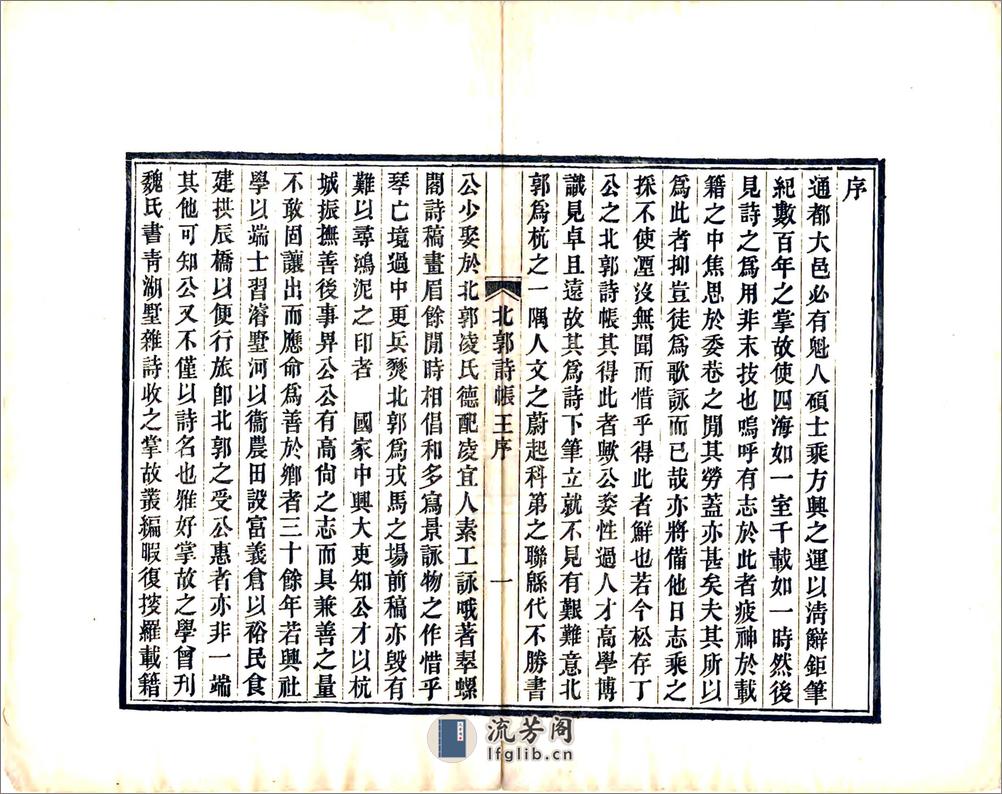 序
通都大邑必有魁人碩士乘方輿之運以清辭鉅筆
紀數百年之掌故使四海如一室千載如一時然後
見詩之爲用非末技也嗚呼有志於此者疲神於載
籍之中焦思於委巷之閒其勞蓋亦甚矣夫其所以
爲此者抑豈徒爲歌詠而已哉亦將備他日志乘之
採不使湮沒無聞而惜乎得此者鮮也若今松存丁
公之北郭詩帳其得此者歟公姿性過人才高學博
識見卓且遠故其爲詩下筆立就不見有艱難意北
郭爲杭之一隅人文之蔚起科第之聯緜代不勝書
北郭詩帳王序 一
公少娶於北郭凌氏德配凌宜人素工詠哦著翠螺
閣詩稿畫眉餘閒時相倡和多寫景詠物之作惜乎
琴亡境過中更兵燹北郭爲戎馬之場前稿亦毀有
難以尋鴻泥之印者 國家中興大吏知公才以杭
城振撫善後事畀公公有高尙之志而具兼善之量
不敢固讓出而應命爲善於鄉者三十餘年若興社
學以端士習濬墅河以衞農田設富義倉以裕民食
建拱辰橋以便行旅卽北郭之受公惠者亦非一端
其他可知公又不僅以詩名也雅好掌故之學曾刊
魏氏書靑湖墅雜詩收之掌故叢編暇復摉羅載籍
流芳阁
lfglib.cn